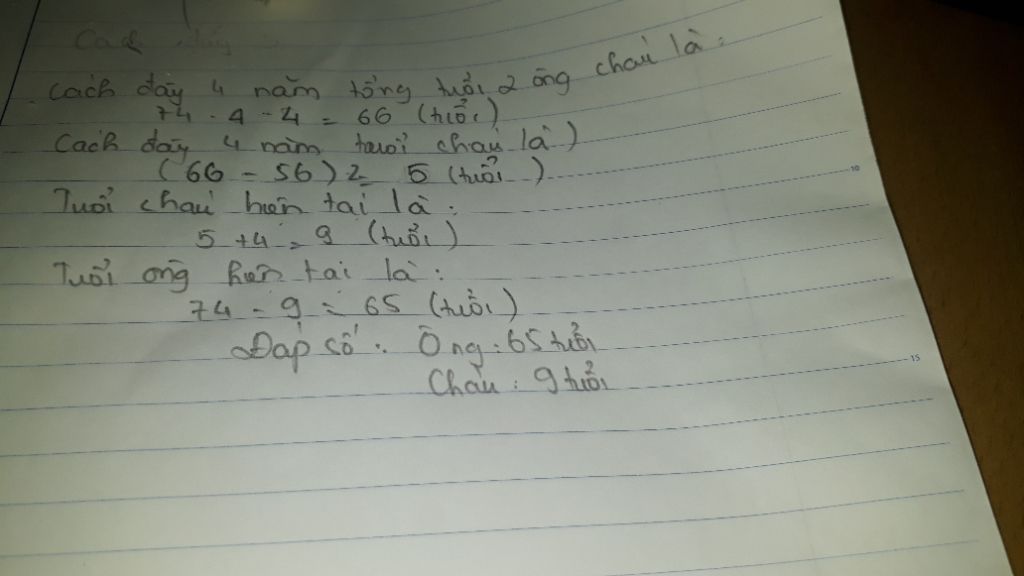 Cách đây 4 năm tổng tuổi 2 ông cháu là:
74 - 4 - 4 = 66 (tuổi)
Cách đây 4 năm tuổi cháu là)
(66 - 56) 2 = 5 (tuổi)
Tuổi cháu hiện tại là:
5 + 4 = 9 (tuổi)
Tuổi ông hiện tại là:
74 - 9 = 65 (tuổi)
Đáp số: Ông: 65 tuổi
Cháu: 9 tuổi
10
15